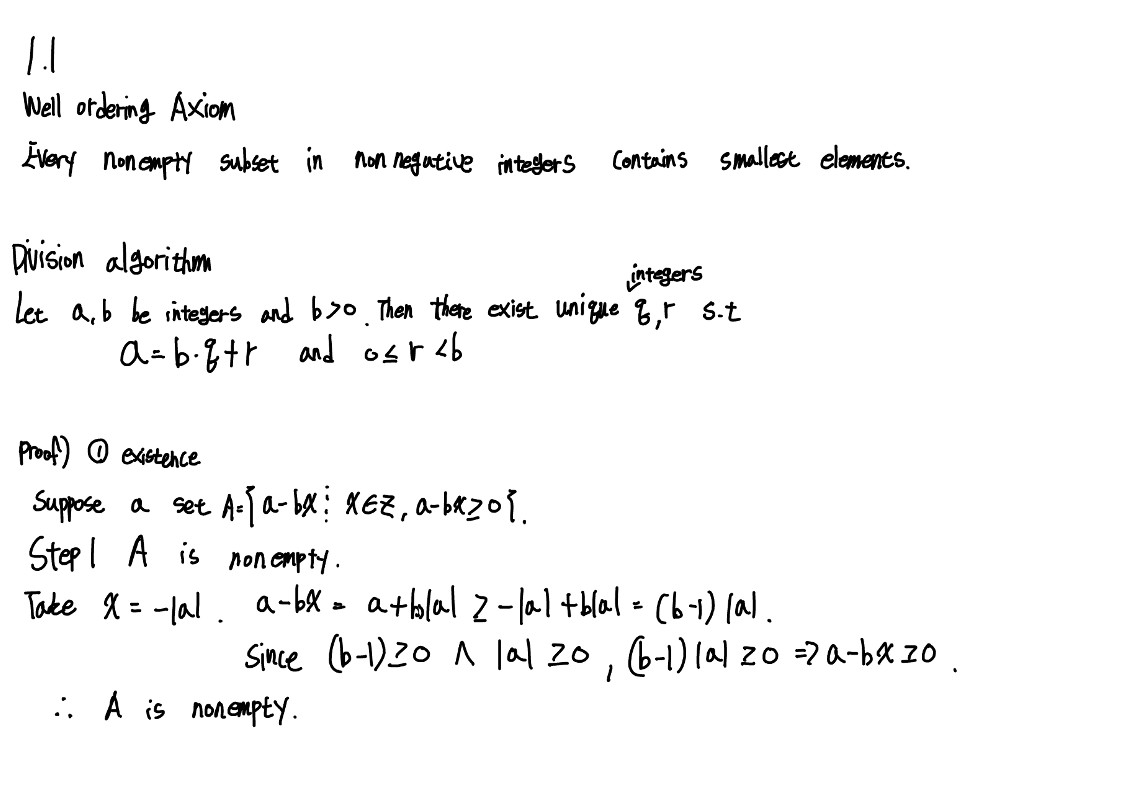 1.1
Well ordering Axiom
Every nonempty subset in nonnegative integers contains smallest elements.
Division algorithm
integers
Let a, b be integers and b>0. Then there exist unique q, r s.t
a = b·q+r and 0≤ r <b
proof) ① existence
Suppose a set A={a-bx⋮ x∈Z, a-bx≥0}.
Step1 A is nonempty.
Take x = -|a|. a-bx = a+b|a| ≥ -|a|+b|a| = (b-1)|a|.
Since (b-1)≥0 ∧ |a| ≥0, (b-1)|a| ≥0 ⇒ a-bx≥0.
∴ A is nonempty.